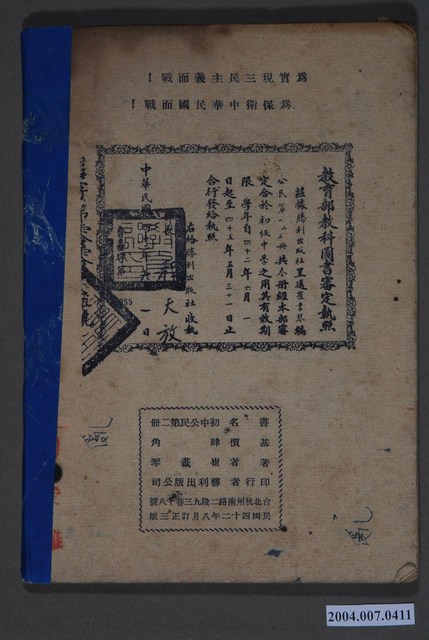 為實現三民主義而戰！
為保衛中華民國而戰！
教育部教科圖書審定執照
茲據勝利出版社呈送崔書琴編
公民(第一二三冊)共叁冊經本部審
定合於初級中學之用其有效期
限 學年自四十二年六月一
日起至四十五年五月三十一日止
合行發給執照
右給勝利出版社收執
部長 程天放
中華民國四十 年 月一日
書名 初中公民第二冊
基價 肆角
著者 崔書琴
印行者 勝利出版公司
台北杭州南路二段九三巷十八號
民國四十二年八月訂正三版
2004.007.0411